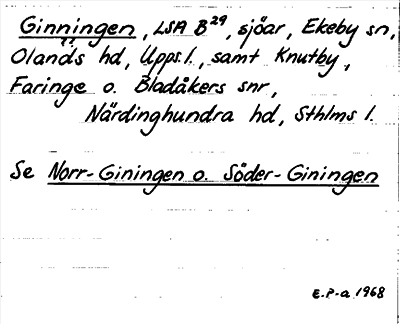 Ginningen, LSA B²⁹, sjöar, Ekeby sn,
Olands hd, Upps. l., samt Knutby,
Faringe o. Bladåkers snr,
Närdinghundra hd, Sthlms l.
Se Norr-Giningen o. Söder-Giningen
E.P-a 1968